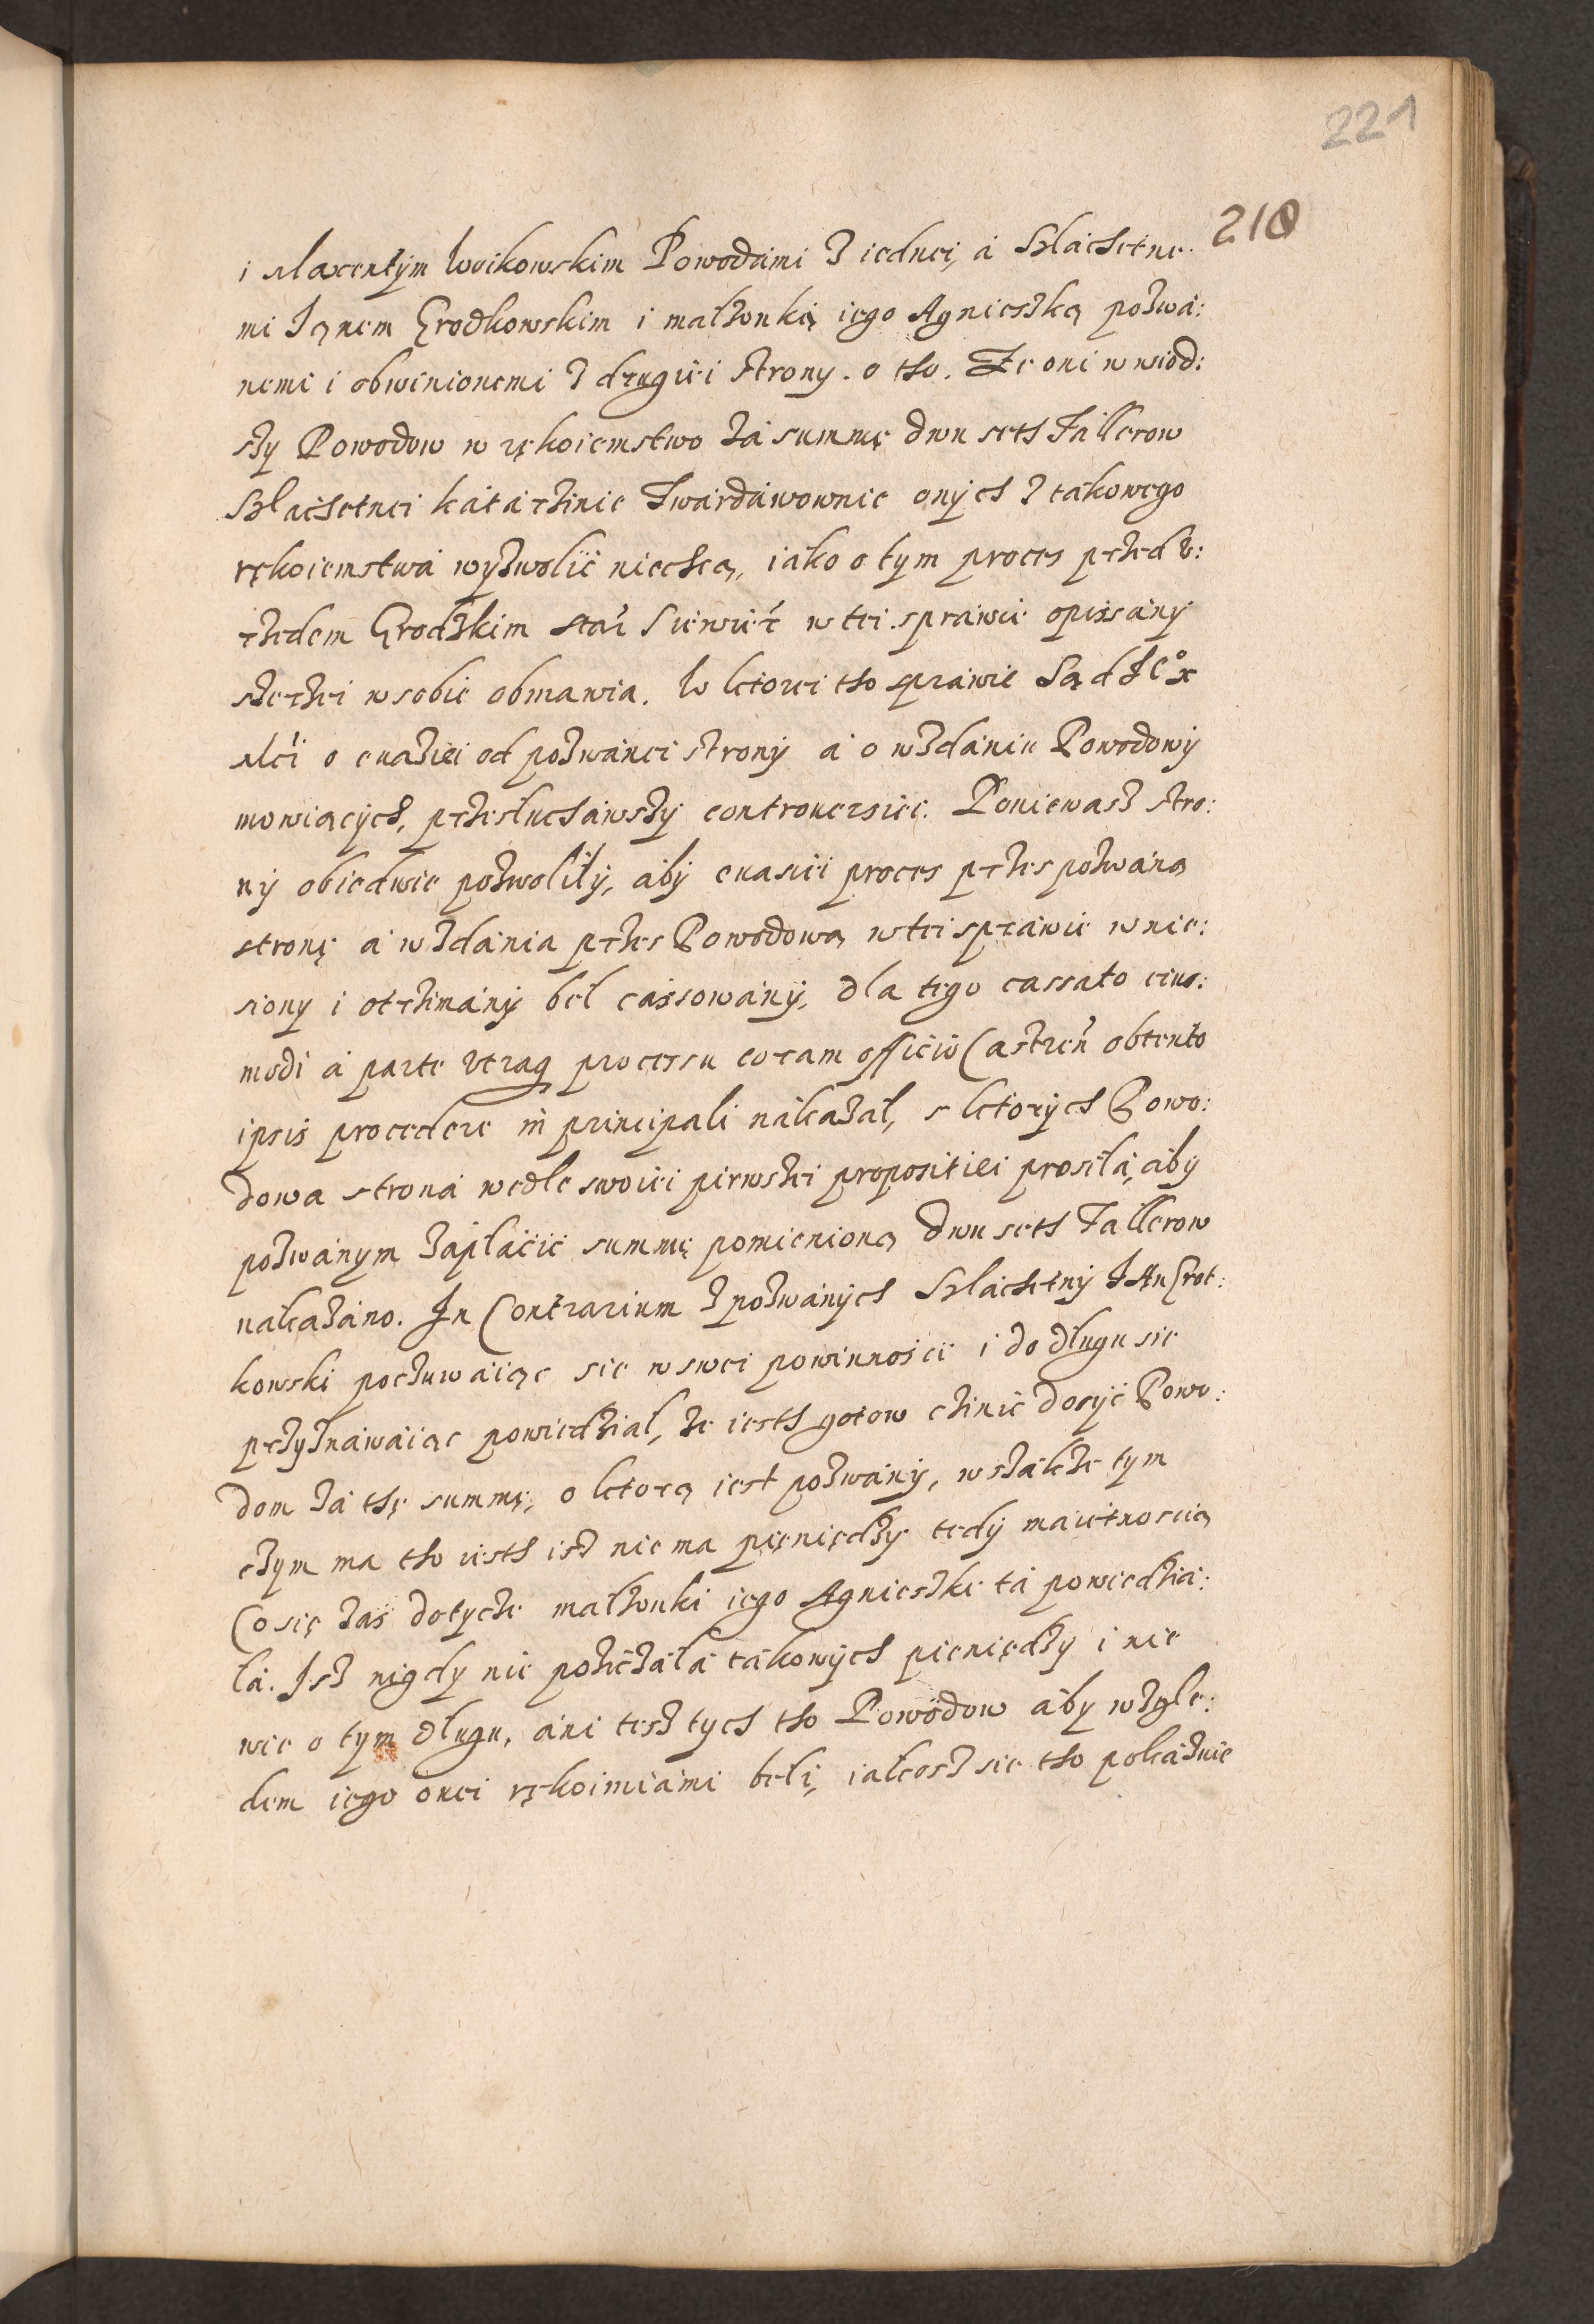 221
218
i Maxentym Woikowskim Powodámi z iednei, á Szláchetne:
mi Ianem Grodkowskim i małżonką iego Agnieszką pozwá:
nemi i obwinionemi z drugiei strony. o tho. Że oni wwiod:
szy Powodow w rękoiemstwo zá summę dwu seth Tallerow
Szláchetnei kátárzinie Twárdáwownie onych z takowego
rękoiemstwá wyzwolić niechcą, iako o tym proces przed V:
rzedem Grodzkim star Siewier w tei sprawie opissány
szerzei w sobie obmawia. W ktorei tho sprawie Sąd Ie° x
Mći o euaziei od pozwánei strony á o wzdaniu Powodowy
mowiących, przesłucháwszy controuersiee. Poniewasz stro:
ny obiedwie pozwoliły, áby euasiei proces przes pozwáną
stronę á wzdania przes Powodową w tei spráwie wnie:
siony i otrzimány beł cássowány, dla tego cassato eius:
modi á parte vtraq processu coram officio Castren obtento
ipsis procedere in principali nákazał, s ktorych Powo:
dowa stroná wedle swoiei pirwszei propositiei prosiłá, áby
pozwánym zápłácić summę pomienioną dwu seth Tallerow
nakazáno. In Contrarium z pozwánych Szláchetny IAn Grot:
kowski poczuwáiąc sie w swei powinności i do długu sie
przyznáwáiąc powiedział, że iesth gotow czinić dosyć Powo:
dom zá thę summę, o ktorą iest pozwány, wszákże tym
czym ma tho iesth isz nie ma pięniędzy tedy maietnoscią
Co się záś dotycze małżonki iego Agnieszki tá powiedziá:
łá. Isz nigdy nie pożiczáłá tákowych pieniędzy i nie
wie o tym długu, áni tesz tych tho Powodow áby wzglę:
dem iego onei rękoimiámi beli, iakosz sie tho pokázuie